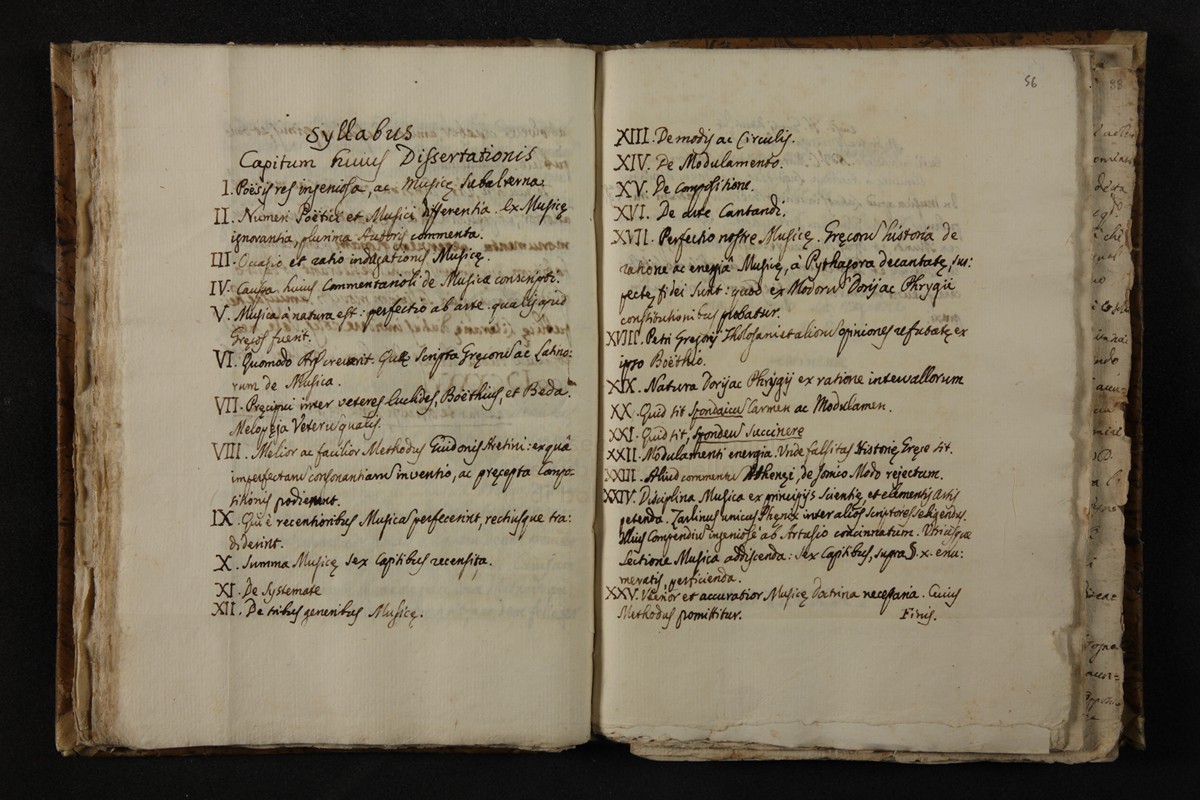 Syllabus
Capitum huius Dissertationis
I. Poësis res ingeniosa, ac Musicę subalterna.
II. Numeri Poëtici et Musici differentia. Ex Musicę
ignorantia, plurima Autoris commenta.
III. Occasio et ratio indagationis Musicę.
IV. Causa huius Commentarioli de Musica conscripti.
V. Musica à natura est: perfectio ab arte. qualis apud
Gręcos fuerit.
VI. Quomodo Ars creverit. Quę scripta Gręcorũ ac Latino:
rum de Musica.
VII. Pręcipui inter veteres Euclides, Boëthius, et Beda.
Melopęja Veterũ qualis.
VIII. Melior ac facilior Methodus Guidonis Aretini: ex quâ
imperfectarũ consonantiarũ inventio, ac pręcepta Compo:
sitionis prodierunt.
IX. Qui è recentioribus Musicã perfecerint, rectiusque tra:
diderint.
X. Summa Musicę sex Capitibus recensita.
XI. De Systemate
XII. De tribus generibus Musicę.
56
XIII. De modis ac Circulis.
XIV. De Modulamento.
XV. De compositione.
XVI. De arte Cantandi.
XVII. Perfectio nostre Musicę. Gręcorũ historia de
ratione ac energiâ Musicę, a Pythagora decantatę, sus:
pectę fidei sunt: quod ex Modorũ Dorij ac Phrygii
constitutionibus probatur.
XVIII. Petri Gregorij Tholosani et aliorũ opiniones refutatę ex
ipso Boëthio.
XIX. Natura Dorij ac Phrygij ex ratione intervallorum
XX. Quid sit Spondaicũ Carmen ac Modulamen.
XXI. Quid sit, spondeũ succinere
XXII. Modulamenti energia. Unde falsitas Historię Gręcę sit.
XXIII. Aliud commentũ Athenęi, de Jonico Modo rejectum.
XXIV. Disciplina Musica ex principijs scientię, et elementis Artis
petenda. Zarlinus unicus Phenix inter alios scriptores seligendus.
Illius Compendiũ ingeniosè ab Artusio concinnatum. Utriusque
lectione Musica addiscenda: sex Capitibus, supra §. x. enu:
meratis, perficienda.
XXV. Verior et accuratior Musicę Doctrina necessaria. Cuius
Methodus promittitur. Finis.
88